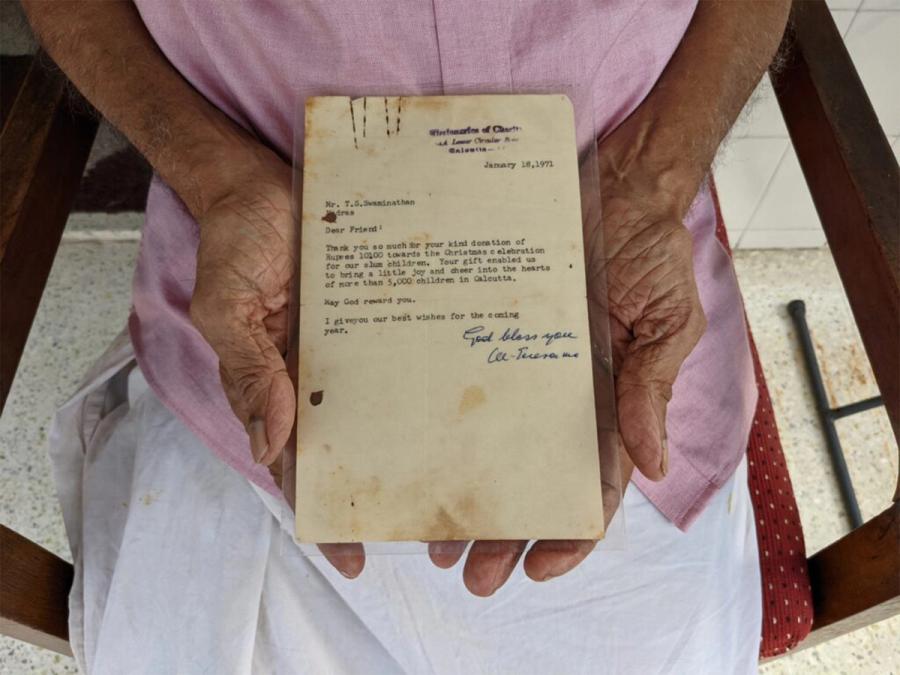 Missionaries of Charity
Lower Circular
Calcutta
January 18,1971
Mr. T.S.Swaminathan
Madras
Dear Friend:
Thank you so much for your kind donation of
Rupees 10100 towards the Christmas celebration
for our slum children. Your gift enabled us
to bring a little joy and cheer into the hearts
of more than 5,000 children in Calcutta.
May God reward you.
I giveyou our best wishes for the coming
year.
God bless you
M. Teresa mc